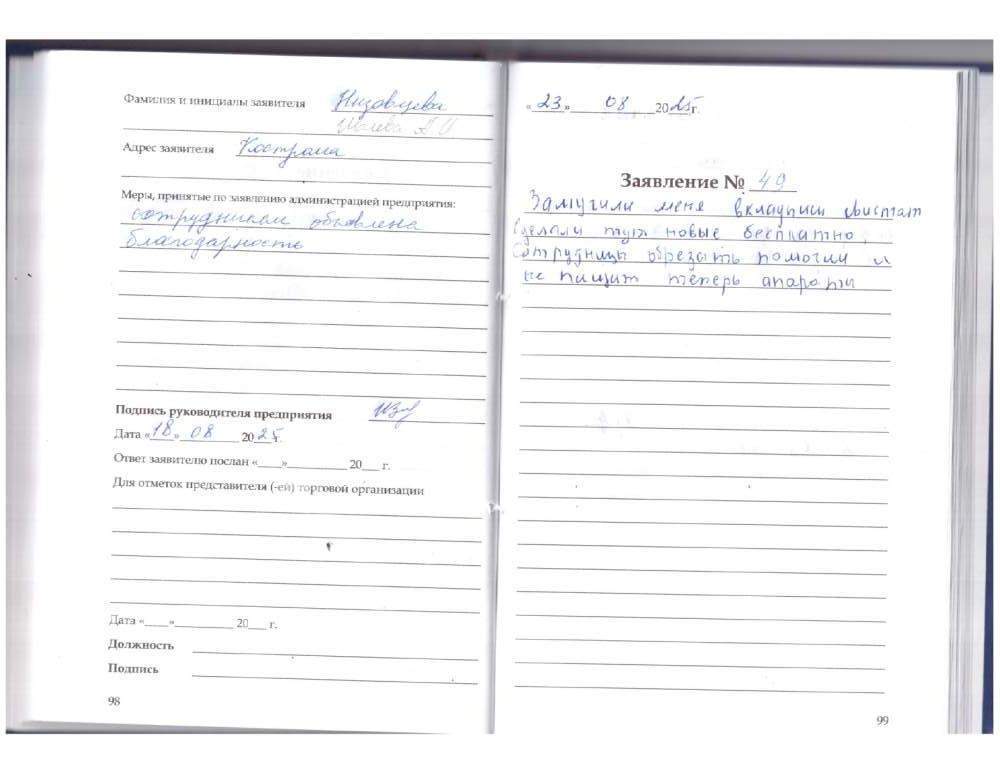 Фамилия и инициалы заявителя Низовцева
Ивлева А И
Адрес заявителя Кострома
Меры, принятые по заявлению администрацией предприятия:
сотрудникам объявлена
благодарность
Подпись руководителя предприятия
Дата «18» 08 2025г.
Ответ заявителю послан «___»__________ 20___ г.
Для отметок представителя (-ей) торговой организации
Дата «____»__________ 20___ г.
Должность
Подпись
98
«23» 08 2025г.
Заявление № 49
Замучили меня вкладыши свистят
сделали тут новые бесплатно,
сотрудницы обрезать помогли и
не пищит теперь апараты
99